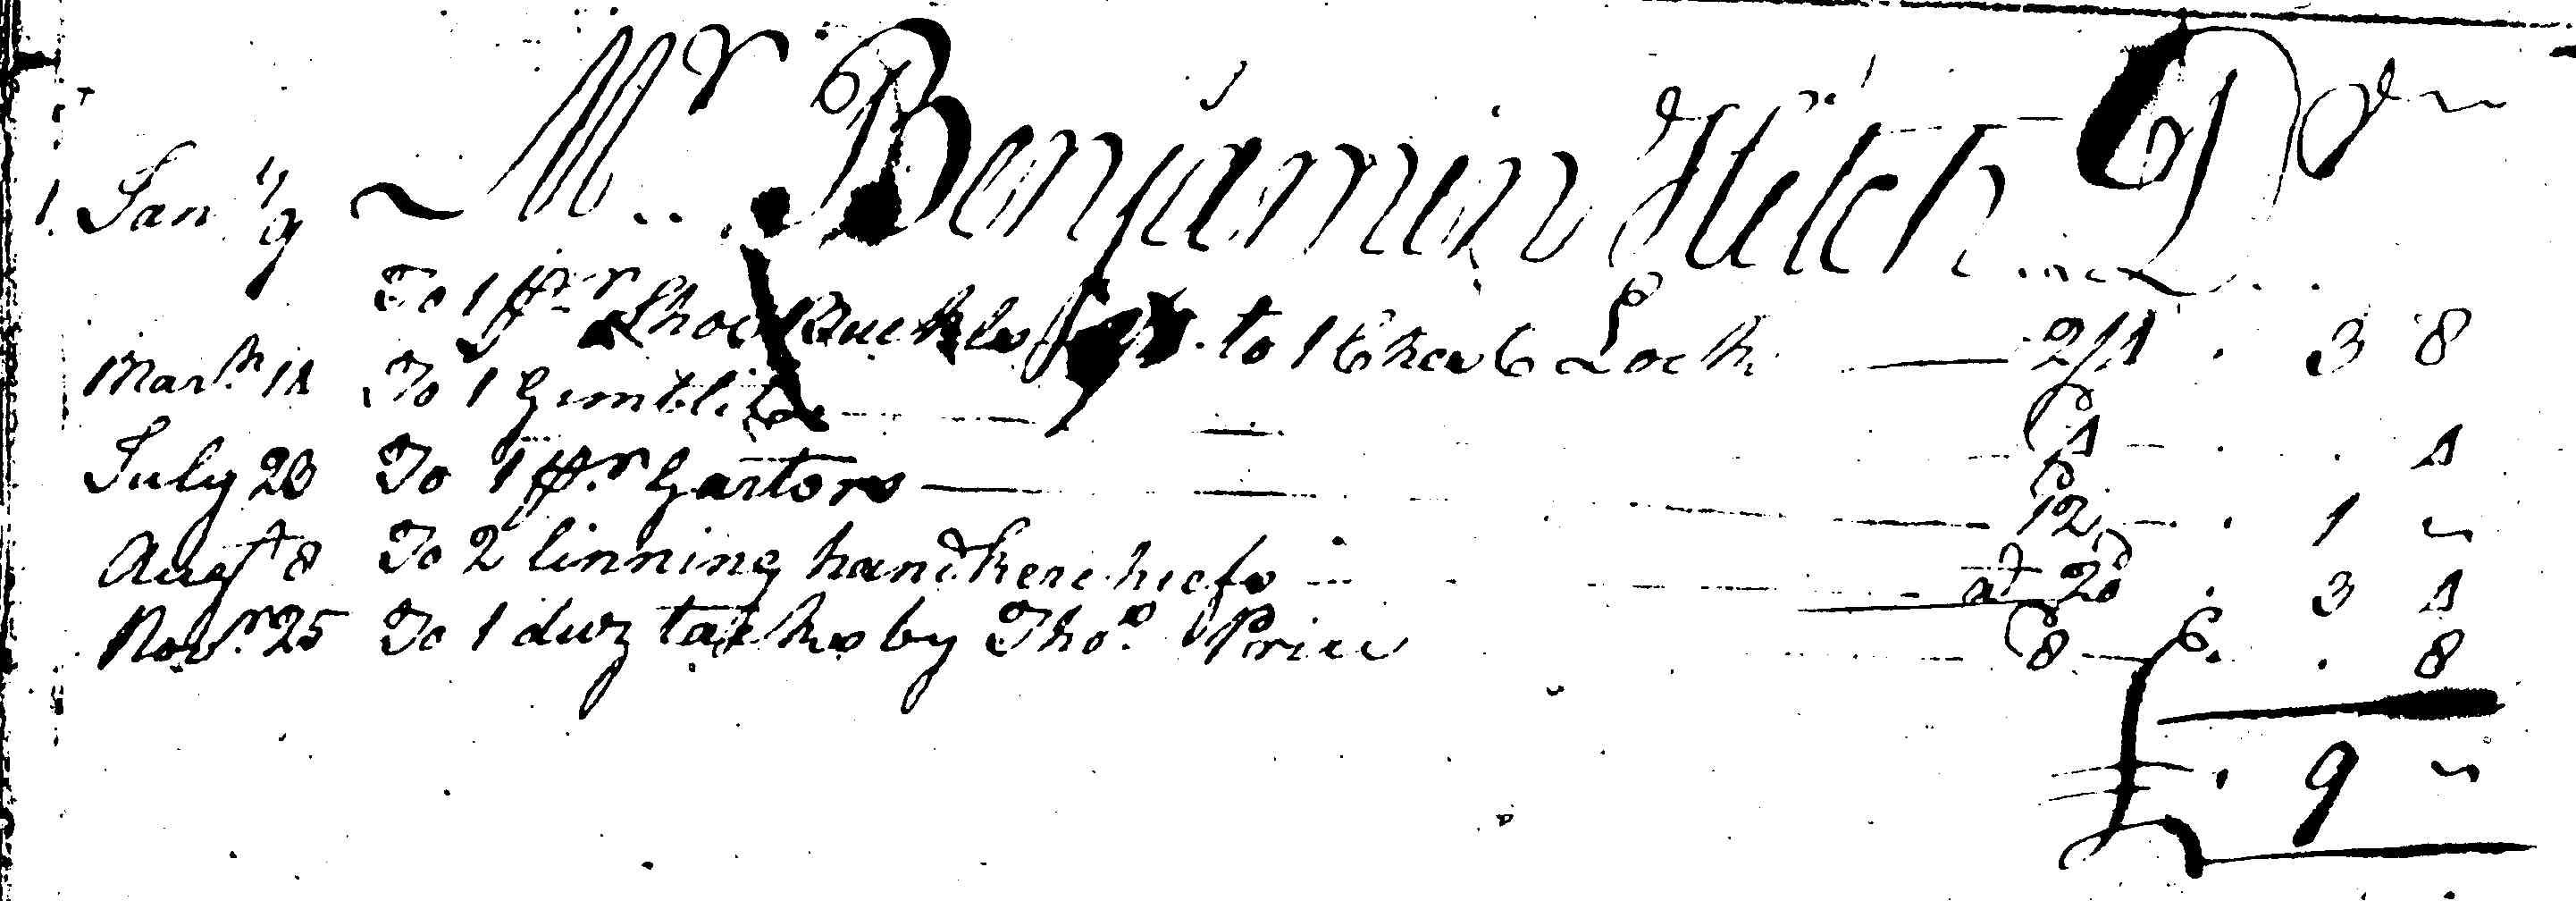 1. Jan.ry 9 ~ Mr. Benjamin Hitch Dr ~
To 1 pr Shoe Buckles to 1 Chest Lock — 2/4 . 3 8
Mar.h 14 To 1 Gimblit — 4 — . . 4
July 23 To 1 pr. Gartors — 12 — . 1 ~
Augt 8 To 2 linning handkerchiefs — at 20 . 3 4
Nov.r 25 To 1 duz tacks by Tho.s Price — 8 — . . 8
£ . 9 ~